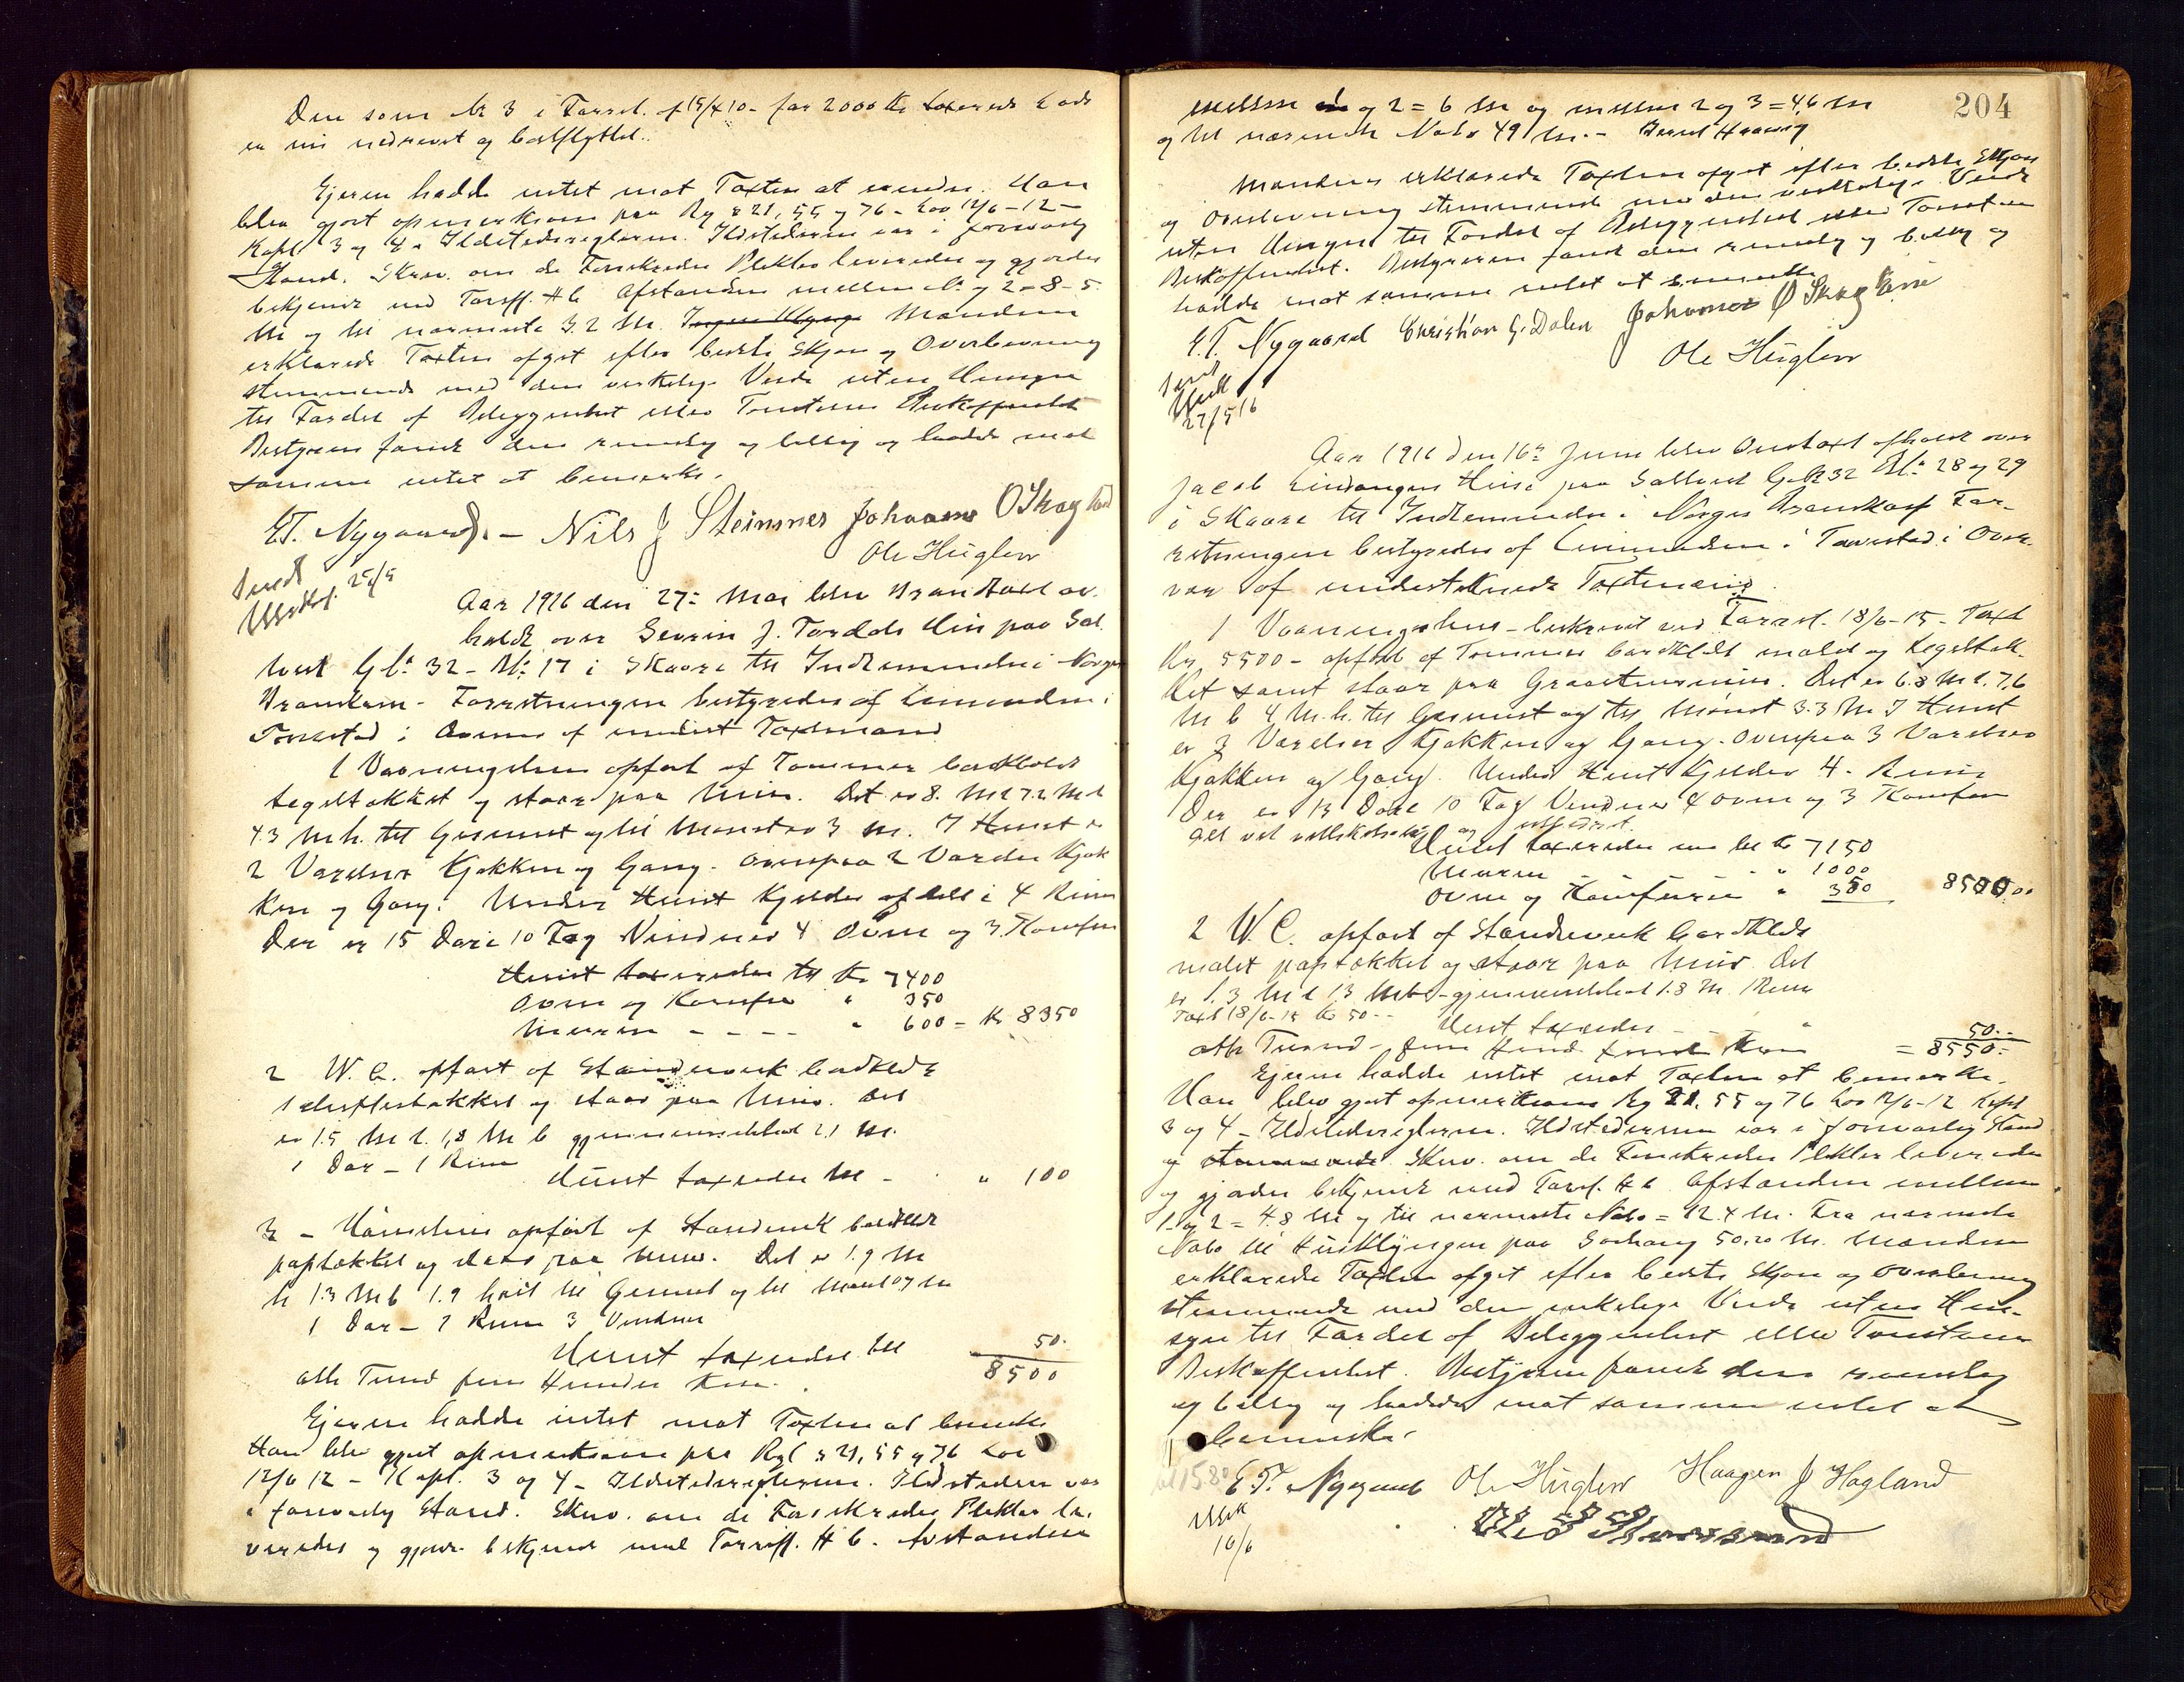 Den som Nr 3 i Forret. af 15/4 10 - for 2000 Kr taxerede Lade
er nu nedrevet og bortflyttet..
Ejeren hadde intet mot Taxten at erindre. Han
blev gjort opmerksom paa Rg § 21, 55 og 76 - Lov 12/6 - 12 -
Kapt 3 og 4 - Ildstedsreglerne. Ildstederne var i forsvarlig
Stand. Skriv. om de Forsikredes Plikter leveredes og gjordes
bekjendt med Tariff. H b Afstanden mellem 1 og 2 = 8-5
M og til nærmeste 32 M. Mændene
erklærede Taxten afgit efter bedste Skjøn og Overbevisning
stemmende med den virkelige Verdi uten Hensyn
til Fordel af Beliggenhet eller Tomtens Beskaffenhet
Bestyreren fandt den rimelig og billig og hadde mot
samme intet at bemerke.
E.T. Nygaard. - Nils J Steinsnes Johannes O Skagland
Ole Huglen
Sendt
25/5
Aar 1916 den 27: Mai blev Brandtaxt av-
holdt over Severin J. Tordals Hus paa Sal-
hus Gb: 32 - Bk: 17 i Skaare til Indlemmelse i Norges
Brandkasse - Forretningen bestyredes af Lensmanden i
Torvestad i Overvær af undert Taxtmænd
1 Vaaningshus opført af Tømmer bordklædt
tegltækket og staar paa Mur. Det er 8. M l 7.2 M b
4.3 M h. til Gesimset og til Mønet er 3 M. I Huset er
2 Værelser Kjøkken og Gang. Ovenpaa 2 Værelser Kjøk
ken og Gang. Under Huset Kjelder afdelt i 4 Rum
Der er 15 Døre 10 Fag Vinduer 4 Ovne og 3 Komfur
Huset taxeredes til Kr 7400
Ovne og Komfur " 350
Muren - - - - " 600 = Kr 8350
2 W. C. opført af Standerverk bordklædt
skifertækket og staar paa Mur. Det
er 1.5 M l. 1,8 M b gjennemsnitshøid 2,1 M.
1 Dør - 1 Rum
Huset taxeredes til - " 100
3 - Hønsehus opført af Standerverk bordklædt
paptækket og staar paa Mur. Det er 1.9 M
l 1.3 M b 1.9 høit til Gesimset og til Mønet 0.7 M
1 Dør - 1 Rum 3 Vinduer
Huset taxeredes til 50.
otte Tusind fem Hundre Kron. 8500
Ejeren hadde intet mot Taxten at bemerke
Han blev gjort opmerksom paa Rgl § 21, 55 og 76 Lov
12/6 12 - Kapt. 3 og 4 - Ildstedsreglerne. Ildstederne var
i forsvarlig Stand. Skriv. om de Forsikredes Plikter le-
veredes og gjordes bekjendt med Tariff. H b. Avstanden
204
mellem 1 og 2 = 6 M og mellem 2 og 3 = 4,6 M
og til nærmeste Nabo 49 M. -
Mændene erklærede Taxten afgit efter bedste Skjøn
og Overbevisning stemmende med den virkelige Verdi
uten Hensyn til Fordel af Beliggenhet eller Tomtens
Beskaffenhet. Bestyreren fandt den rimelig og billig og
hadde mot samme intet at bemerke
E.T. Nygaard Christian G. Dalen Johannes O Skagland
Ole Huglen
Sendt
27/5 16
Aar 1916 den 16: Juni blev Omtaxt afholdt over
Jacob Lindanger Huse paa Salhus G. Nr 32 Bk: 28 og 29
i Skaare til Indlemmelse i Norges Brandkasse For-
retningen bestyredes af Lensmanden i Torvestad i Over-
vær af undertegnede Taxtmænd.
1 Vaaningshus - beskrevet ved Forret. 18/6 - 15 - Taxt
Kr 5500 - opført af Tømmer bordklædt malet og tegltæk-
ket samt staar paa Graastensmur. Det er 6.8 M l. 7,6
M b 4 M. h. til Gesimset og til Mønet 3.3 M I Huset
er 3 Værelser Kjøkken og Gang. Ovenpaa 3 Værelser
Kjøkken og Gang. Under Huset Kjelder 4. Rum
Der er 13 Døre 10 Fag Vinduer 4 Ovne og 3 Komfur
alt vel vedlikeholdt og
Huset taxeredes nu til Kr 7150
Muren - - " 1000
Ovne og Komfurer " 350 8500.00
2 W. C. opført af Standerverk bordklædt
malet paptækket og staar paa Mur. Det
er 1.3 M l 1.3 M b - gjennemsnitshøid 1.8 M. 1 Rum
Taxt 18/6 - 15 Kr 50 - - Huset taxeredes - - " 50. -
otte Tusind - fem Hund. femti Kron = 8550. -
Ejeren hadde intet mot Taxten at bemerke.
Han blev gjort opmerksom Rg 21, 55 og 76 Lov 12/6 - 12 Kapt
3 og 4 - Ildstedsreglerne. Ildstederne var i forsvarlig Stand
og Skriv. om de Forsikredes Plikter leveredes
og gjordes bekjendt med Tarif. H b Afstanden mellem
1 og 2 = 4.8 M og til nærmeste Nabo = 12.4 M. Fra nærmeste
Nabo til Husklyngen paa Sørhaug 50,20 M. Mændene
erklærede Taxten afgit efter bedste Skjøn og Overbevisning
stemmende med den virkelige Verdi uten Hen-
syn til Fordel af Beliggenhet eller Tomtens
Beskaffenhet. Bestyreren fandt den rimelig
og billig og hadde mot samme intet at
bemerke.
E. T. Nygaard Ole Huglen Haagen J Hagland
16/6